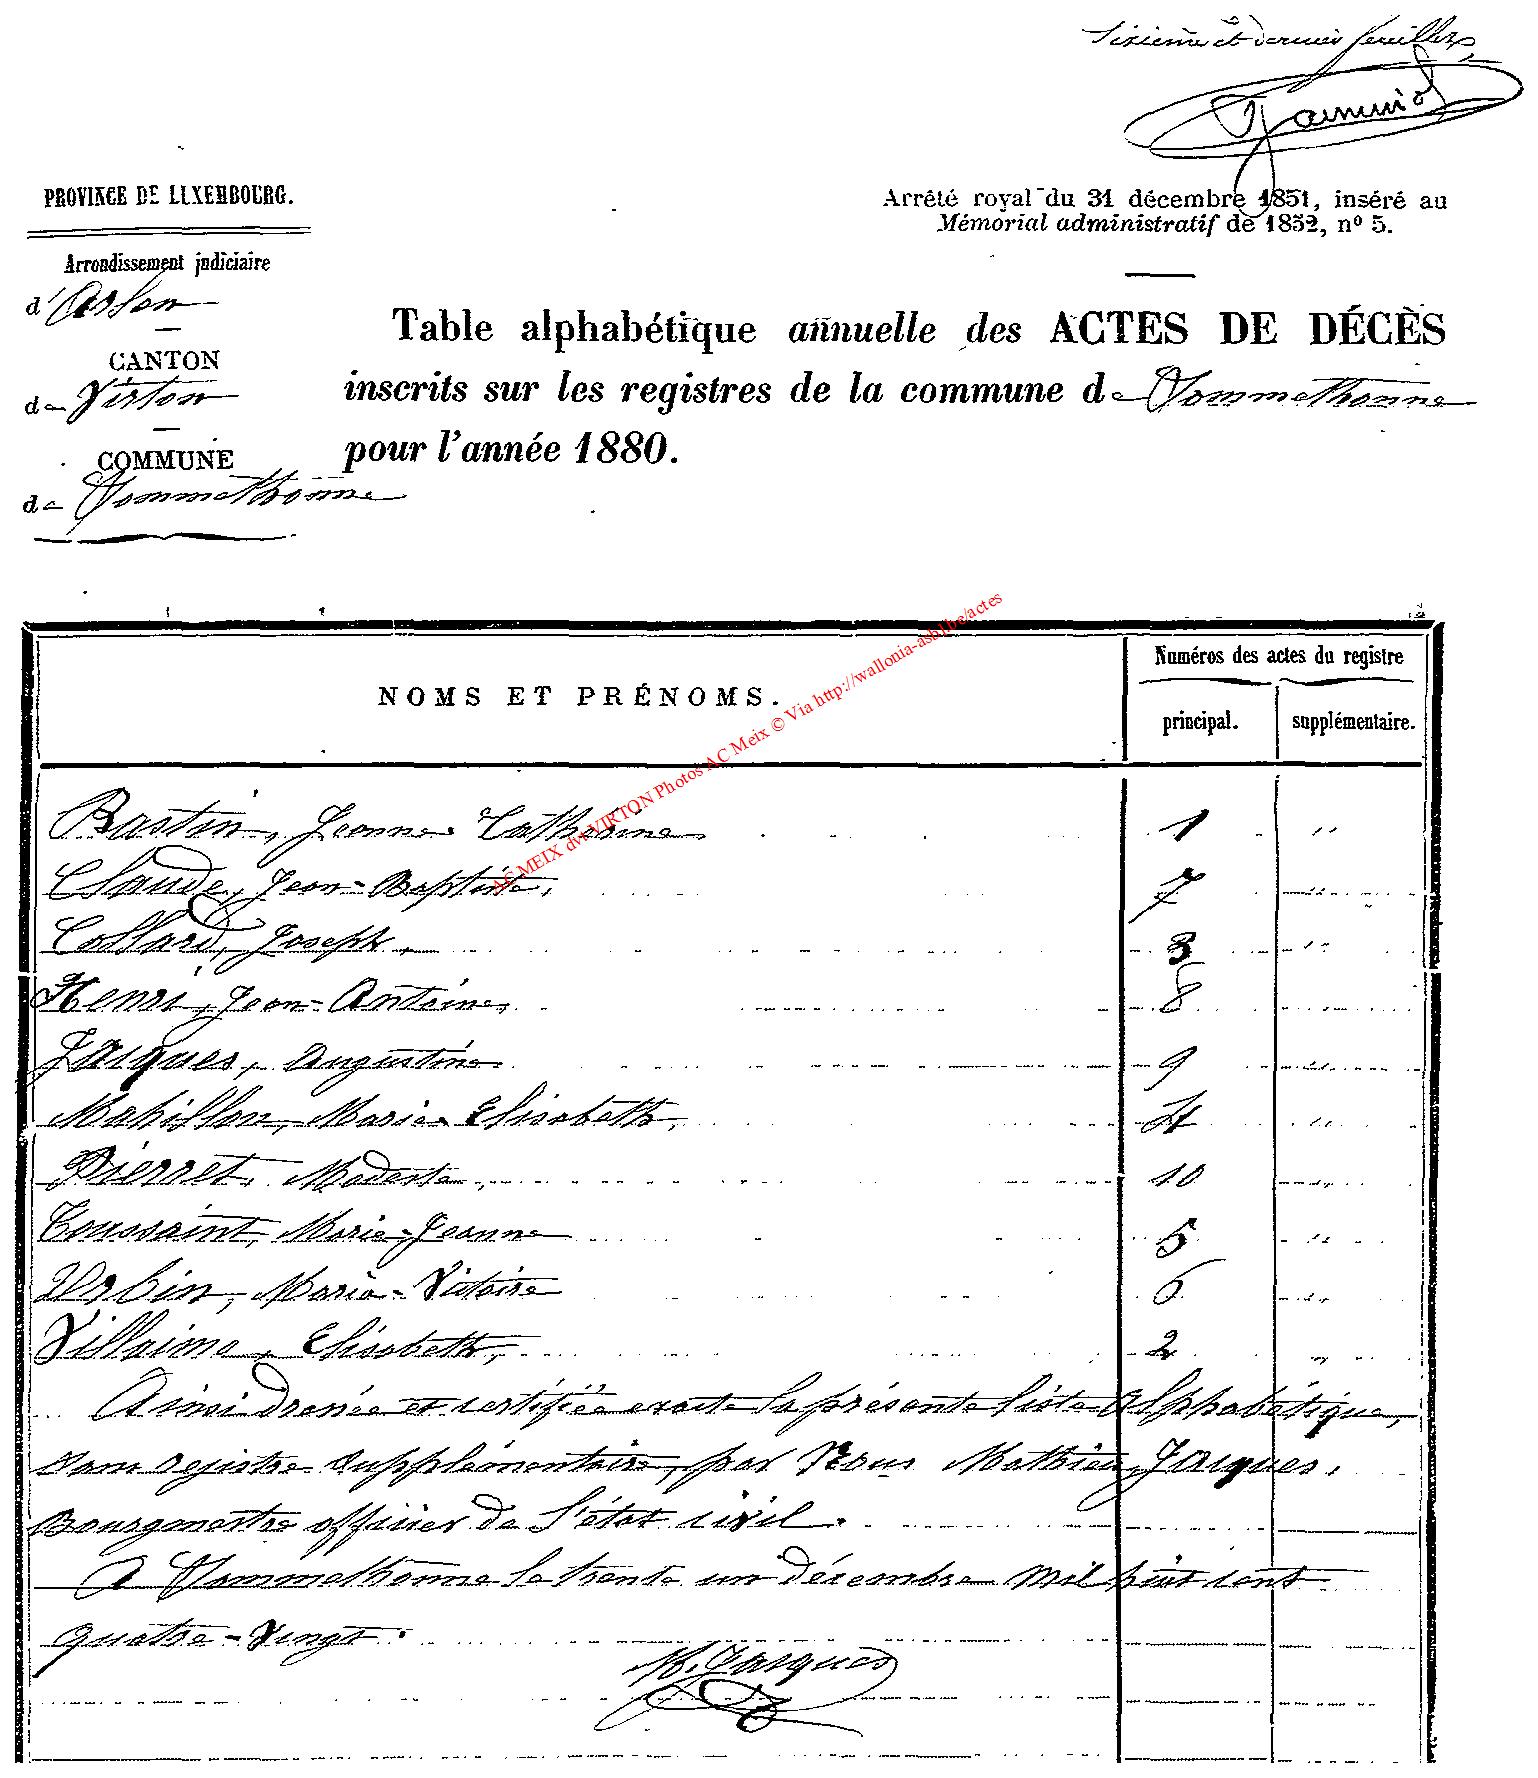 Sixième et dernier feuillet,
PROVINCE DE LUXEMBOURG.
Arrêté royal du 31 décembre 1851, inséré au
Mémorial administratif de 1852, nº 5.
Arrondissement judiciaire
d'Arlon
CANTON
de Virton
COMMUNE
de Sommethonne
Table alphabétique annuelle des ACTES DE DÉCÈS
inscrits sur les registres de la commune de Sommethonne
pour l'année 1880.
NOMS ET PRÉNOMS.
Numéros des actes du registre
principal. supplémentaire.
AC MEIX dvt VIRTON Photos AC Meix © Via http://wallonia-asbl.be/actes
Bastin, Jeanne Catherine 1 "
Claude, Jean-Baptiste, 7 "
Collard, Joseph, 3 "
Henri, Jean-Antoine, 8 "
Jacques, Augustine 9 "
Mahillon, Marie Elisabeth, 4 "
Pierret, Modeste, 10 "
Toussaint, Marie-Jeanne 5 "
Urbin, Marie-Victoire 6 "
Villaime, Elisabeth, 2 "
Ainsi dressée et certifiée exacte la présente liste alphabétique,
sans registre supplémentaire, par Nous Mathieu Jacques,
Bourgmestre officier de l'état civil.
A Sommethonne le trente un décembre mil huit cent
quatre-vingt.
M. Jacques